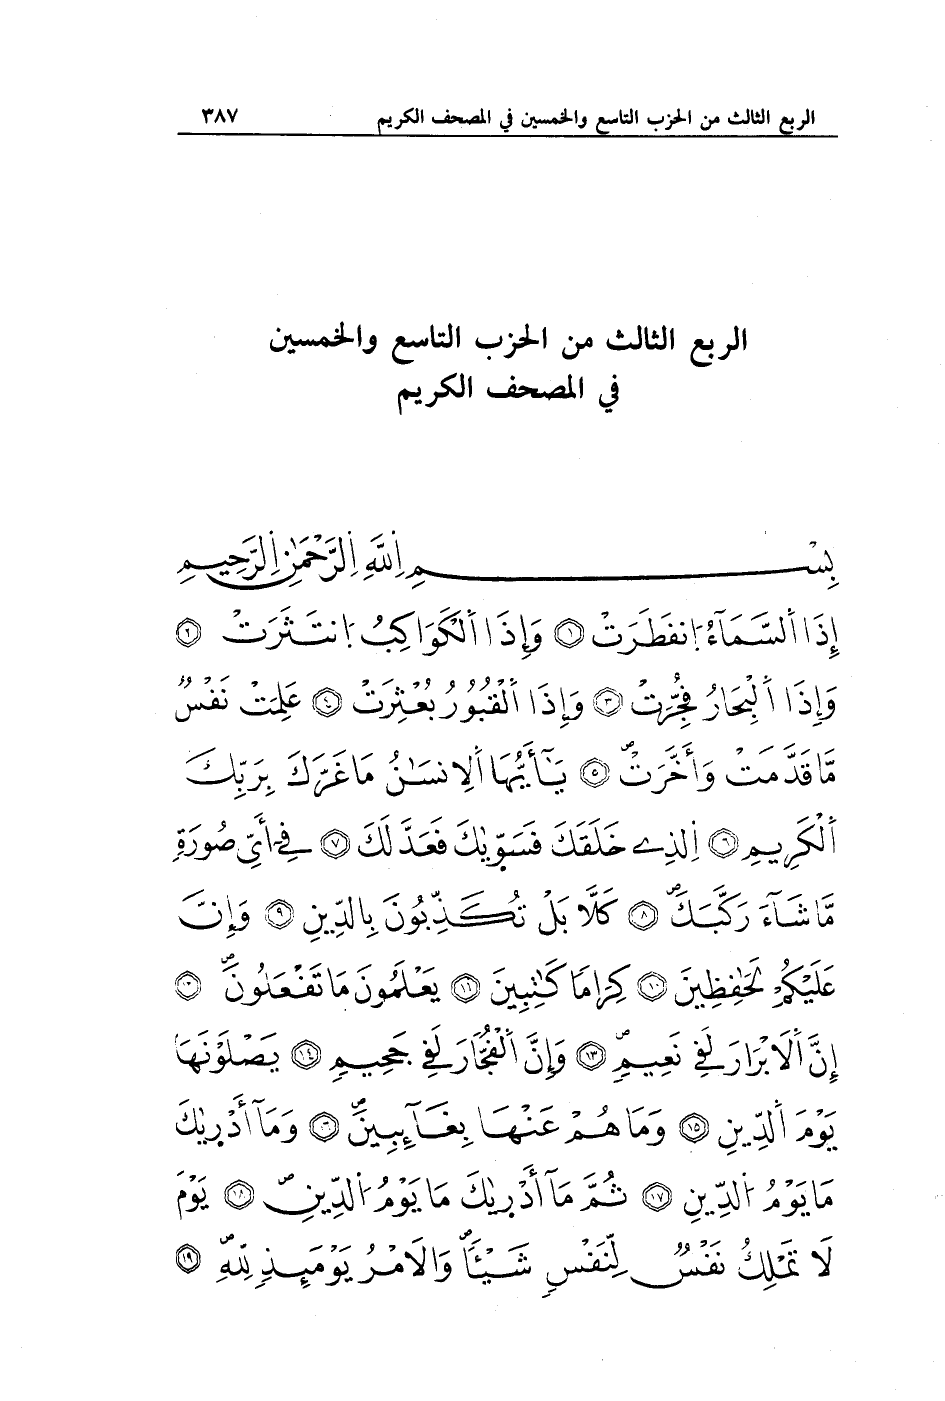 الربع الثالث من الحزب التاسع والخمسين في المصحف الكريم ٣٨٧
الربع الثالث من الحزب التاسع والخمسين
في المصحف الكريم
بِسْمِ اِللَّهِ اِلرَّحْمَٰنِ اِلرَّحِيمِ
إِذَا اَلسَّمَآءُ اُ۪نفَطَرَتْ ١ وَإِذَا اَلْكَوَاكِبُ اُ۪نتَثَرَتْ ٢
وَإِذَا اَلْبِحَارُ فُجِّرَتْ ٣ وَإِذَا اَلْقُبُورُ بُعْثِرَتْ ٤ عَلِمَتْ نَفْسٌ
مَّا قَدَّمَتْ وَأَخَّرَتْ ٥ يَٰٓأَيُّهَا اَلِانسَٰنُ مَا غَرَّكَ بِرَبِّكَ
اَلْكَرِيمِ ٦ اِلذِے خَلَقَكَ فَسَوّ۪يٰكَ فَعَدَّلَكَ ٧ فِےٓ أَيِّ صُورَةٍ
مَّا شَآءَ رَكَّبَكَ ٨ كَلَّا بَلْ تُكَذِّبُونَ بِالدِّينِ ٩ وَإِنَّ
عَلَيْكُمْ لَحَٰفِظِينَ ١٠ كِرَاماً كَٰتِبِينَ ١١ يَعْلَمُونَ مَا تَفْعَلُونَ ١٢
إِنَّ اَلَابْرَارَ لَفِے نَعِيمٍ ١٣ وَإِنَّ اَلْفُجَّارَ لَفِے جَحِيمٍ ١٤ يَصْلَوْنَهَا
يَوْمَ اَلدِّينِ ١٥ وَمَا هُمْ عَنْهَا بِغَآئِبِينَ ١٦ وَمَآ أَدْر۪يٰكَ
مَا يَوْمُ اُلدِّينِ ١٧ ثُمَّ مَآ أَدْر۪يٰكَ مَا يَوْمُ اُلدِّينِ ١٨ يَوْمَ
لَا تَمْلِكُ نَفْسٌ لِّنَفْسٍ شَيْـٔاً وَالَامْرُ يَوْمَئِذٍ لِّلهِ ١٩